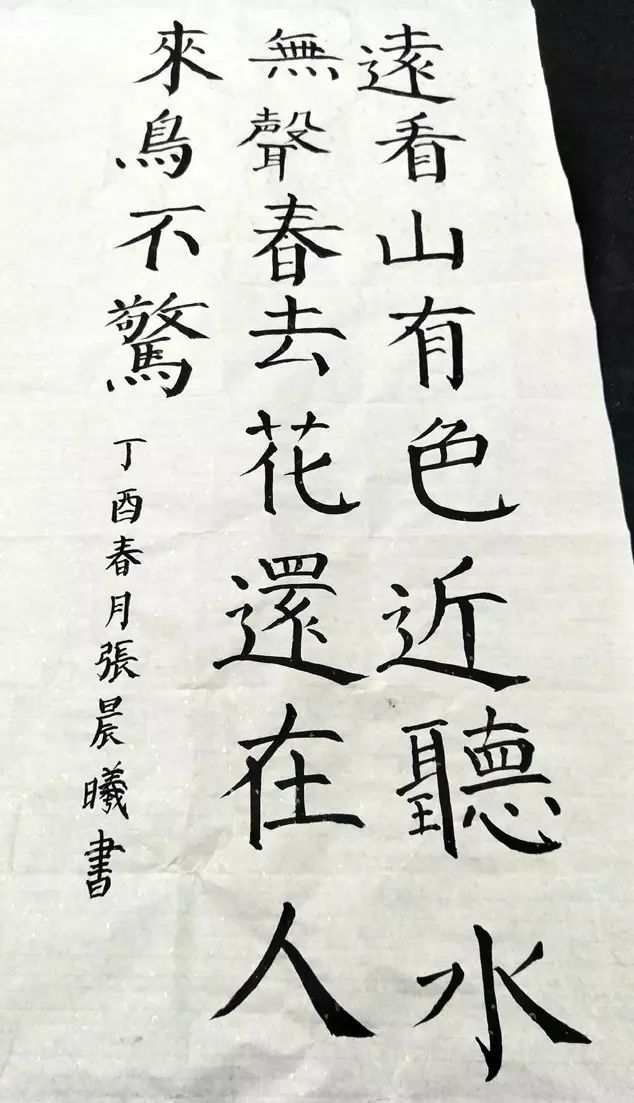 遠看山有色近聽水
無聲春去花還在人
來鳥不驚
丁酉春月張晨曦書